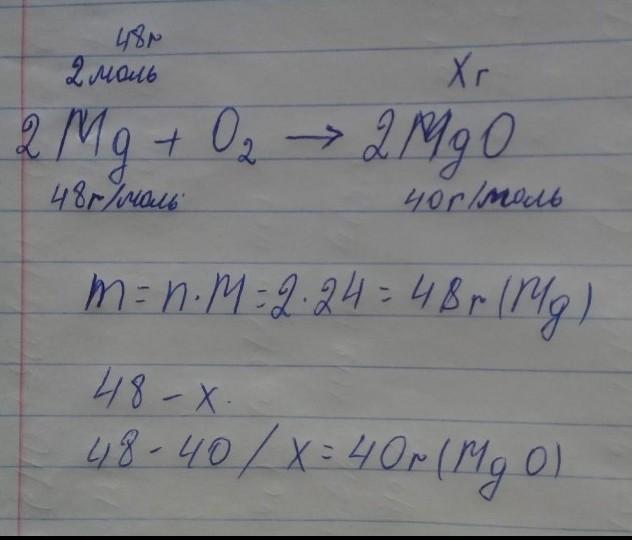 48г
2 моль Xг
2Mg + O₂ → 2MgO
48г/моль 40г/моль
m = n·M = 2·24 = 48г (Mg)
48 – x.
48 - 40 / x = 40г (MgO)